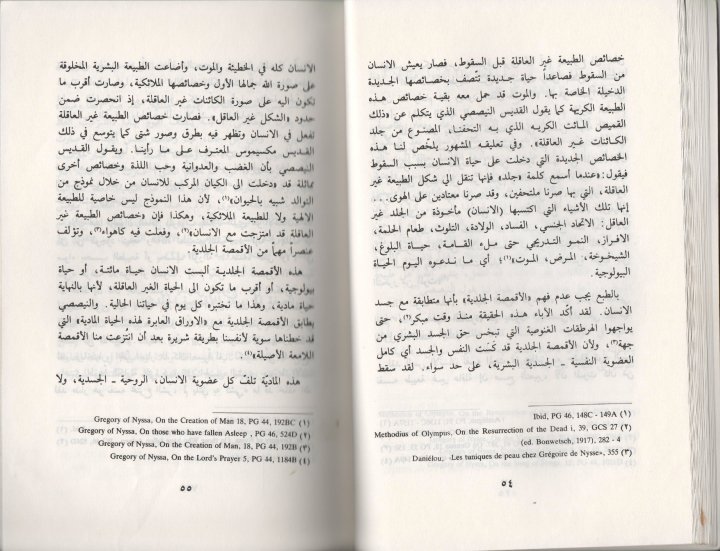 خصائص الطبيعة غير العاقلة قبل السقوط، فصار يعيش الانسان
من السقوط فصاعداً حياة جديدة تتّصف بخصائصها الجديدة
الدخيلة الخاصة بها. والموت قد حمل معه بقية خصائص هذه
الطبيعة الكريهة كما يقول القديس النيصصي الذي يتكلم عن «ذلك
القميص المائت الكريه الذي به التحفنا، المصنوع من جلد
الكائنات غير العاقلة». وفي تعليقه المشهور يلخّص لنا هذه
الخصائص الجديدة التي دخلت على حياة الانسان بسبب السقوط
فيقول: «عندما أسمع كلمة «جلد» فإنها تنقل الي شكل الطبيعة غير
العاقلة، التي بها صرنا ملتحفين، وقد صرنا معتادين على الهوى...
إنها تلك الأشياء التي اكتسبها (الانسان) مأخوذة من الجلد غير
العاقل: الاتحاد الجنسي، الفساد، الولادة، التلوث، طعام الحلمة،
الافراز، النمو التدريجي حتى ملء القامة، حياة البلوغ،
الشيخوخة، المرض، الموت»(١)؛ أي ما ندعوه اليوم الحياة
البيولوجية.
بالطبع يجب عدم فهم «الأقمصة الجلدية» بأنها متطابقة مع جسد
الانسان. لقد أكّد الآباء هذه الحقيقة منذ وقت مبكر(٢)، حتى
يواجهوا الهرطقات الغنوصية التي تبخس حق الجسد البشري من
جهة(٣)، ولأن الأقمصة الجلدية قد كَسَت النفس والجسد أي كامل
العضوية النفسية - الجسدية البشرية، على حد سواء. لقد سقط
(١) Ibid, PG 46, 148C - 149A
(٢) Methodius of Olympus, On the Resurrection of the Dead i, 39, GCS 27
(ed. Bonwetsch, 1917), 282 - 4
(٣) Daniélou, «Les tuniques de peau chez Grégoire de Nysse», 355
٥٤
الانسان كله في الخطيئة والموت، وأضاعت الطبيعة البشرية المخلوقة
على صورة الله جمالها الأول وخصائصها الملائكية، وصارت أقرب ما
تكون اليه على صورة الكائنات غير العاقلة، إذ انحصرت ضمن
حدود «الشكل غير العاقل». فصارت خصائص الطبيعة غير العاقلة
تفعل في الانسان وتظهر فيه بطرق وصور شتى كما يتوسع في ذلك
القديس مكسيموس المعترف على ما رأينا. ويقول القديس
النيصصي بأن الغضب والعدوانية وحب اللذة وخصائص أخرى
مماثلة قد «دخلت الى الكيان المركب للانسان من خلال نموذج من
التوالد شبيه بالحيوان»(١)، لأن هذا النموذج ليس خاصية للطبيعة
الالهية ولا للطبيعة الملائكية، وهكذا فإن «خصائص الطبيعة غير
العاقلة قد امتزجت مع الانسان»(٢)، وفعلت فيه كأهواء(٣)، وتؤلف
عنصراً مهماً من الأقمصة الجلدية.
هذه الأقمصة الجلدية ألبست الانسان حياة مائتة، أو حياة
بيولوجية، أو أقرب ما تكون الى الحياة الغير العاقلة، لأنها بالنهاية
حياة مادية، وهذا ما نختبره كل يوم في حياتنا الحالية. والنيصصي
يطابق الأقمصة الجلدية مع «الاوراق العابرة لهذه الحياة المادية» التي
قد خطناها سوية لأنفسنا بطريقة شريرة بعد أن انتُزعت منا الأقمصة
اللامعة الأصيلة»(٤).
هذه الماديّة تلفّ كل عضوية الانسان، الروحية - الجسدية، ولا
(١) Gregory of Nyssa, On the Creation of Man 18, PG 44, 192BC
(٢) Gregory of Nyssa, On those who have fallen Asleep , PG 46, 524D
(٣) Gregory of Nyssa, On the Creation of Man, 18, PG 44, 192B
(٤) Gregory of Nyssa, On the Lord's Prayer 5, PG 44, 1184B
٥٥